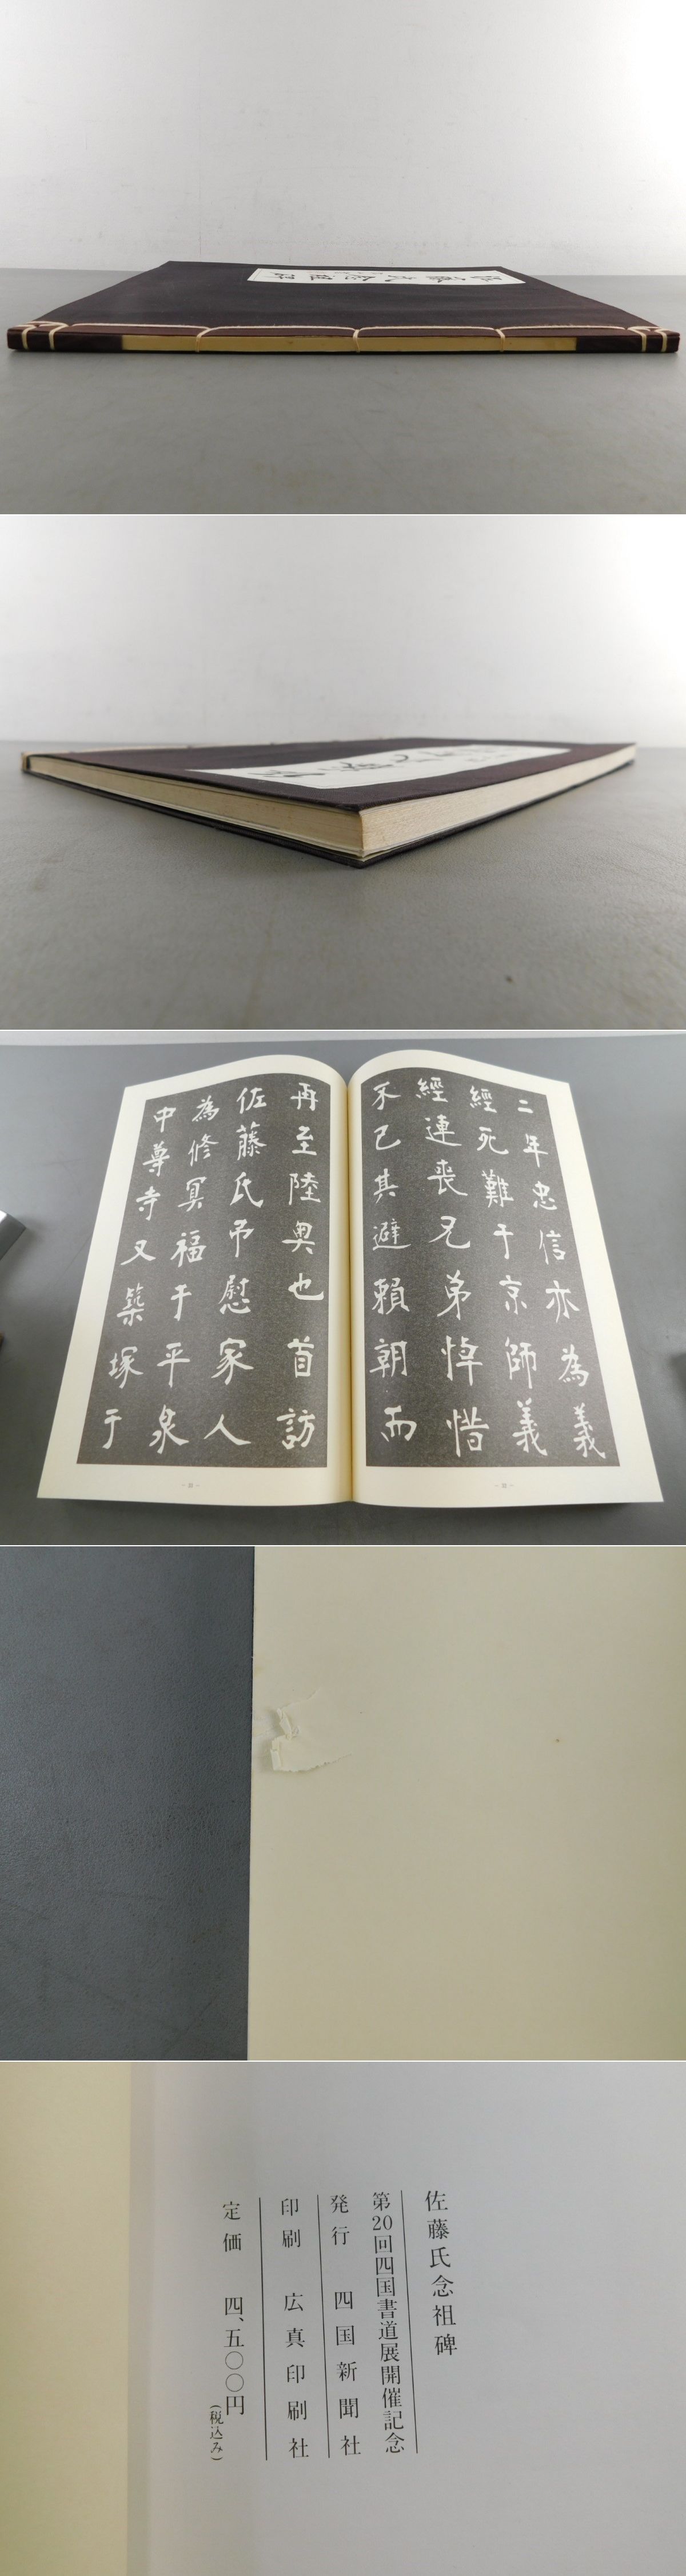 二年忠信亦為義
經死難于京師義
經連喪兄弟悼惜
不已其避賴朝而
再至陸奥也首訪
佐藤氏弔慰家人
為修冥福于平泉
中尊寺又築塚于
佐藤氏念祖碑
第20回四国書道展開催記念
発行 四国新聞社
印刷 広真印刷社
定価 四、五〇〇円
(税込み)